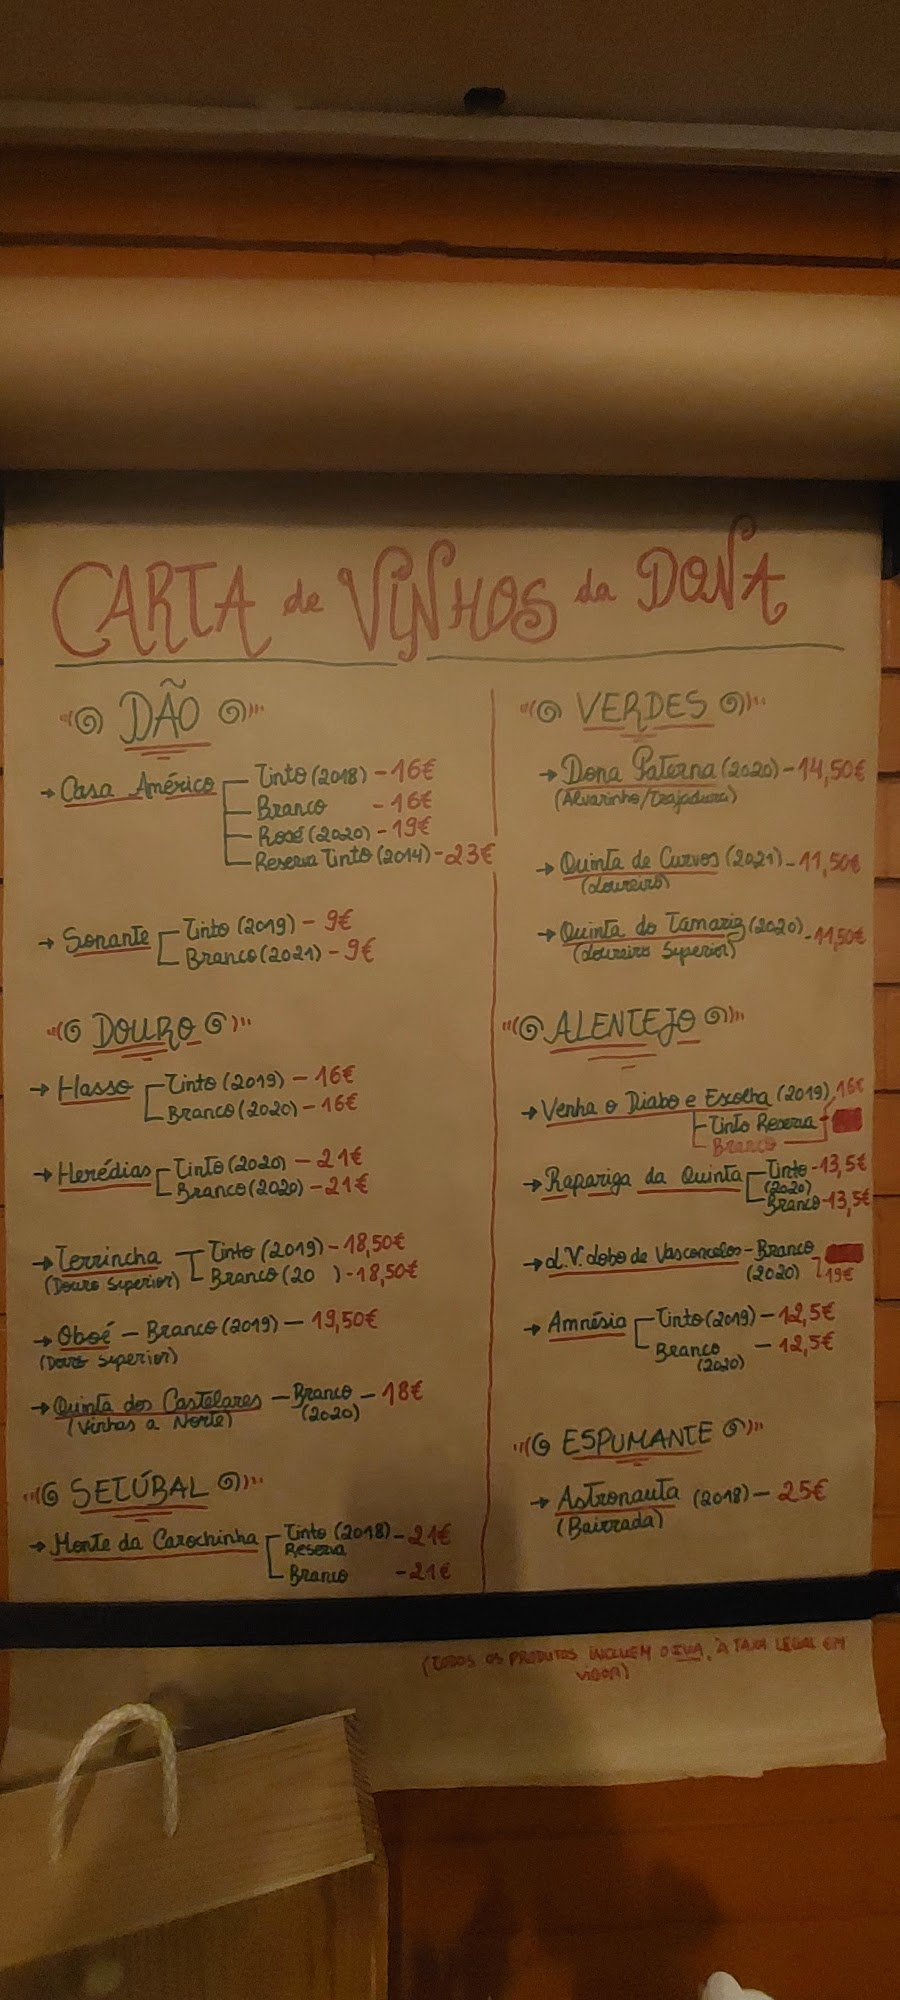 CARTA de VINHOS da DONA
DÃO
→ Casa Américo
Tinto (2018) - 16€
Branco - 16€
Rosé (2020) - 19€
Reserva Tinto (2014) - 23€
→ Sonante
Tinto (2019) - 9€
Branco (2021) - 9€
DOURO
→ Hasso
Tinto (2019) - 16€
Branco (2020) - 16€
→ Herédias
Tinto (2020) - 21€
Branco (2020) - 21€
→ Terrincha
(Douro Superior)
Tinto (2019) - 18,50€
Branco (20 ) - 18,50€
→ Oboé - Branco (2019) - 19,50€
(Douro Superior)
→ Quinta dos Castelares - Branco - 18€
(Vinhas a Norte) (2020)
SETÚBAL
→ Monte da Carochinha
Tinto (2018) - 21€
Reserva
Branco - 21€
VERDES
→ Dona Paterna (2020) - 14,50€
(Alvarinho/Trajadura)
→ Quinta de Curvos (2021) - 11,50€
(Loureiro)
→ Quinta do Tamariz (2020) - 11,50€
(Loureiro Superior)
ALENTEJO
→ Venha o Diabo e Escolha (2019) 16€
Tinto Reserva
Branco
→ Rapariga da Quinta
Tinto - 13,5€
(2020)
Branco - 13,5€
→ d.V. Lobo de Vasconcelos - Branco
(2020) 19€
→ Amnésia
Tinto (2019) - 12,5€
Branco - 12,5€
(2020)
ESPUMANTE
→ Astronauta (2018) - 25€
(Bairrada)
(TODOS OS PRODUTOS INCLUEM O IVA, À TAXA LEGAL EM
VIGOR)